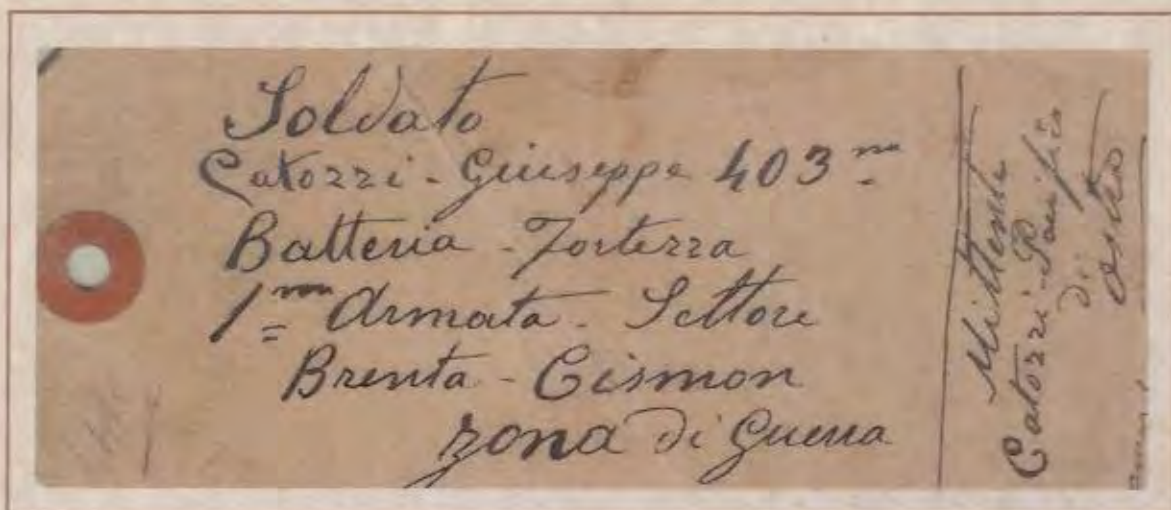 Soldato
Catozzi - Giuseppe 403 ma
Batteria - Fortezza
1 ma Armata - Settore
Brenta - Cismon
zona di Guerra
Mittente
Catozzi - Pacifico
di
Ostra